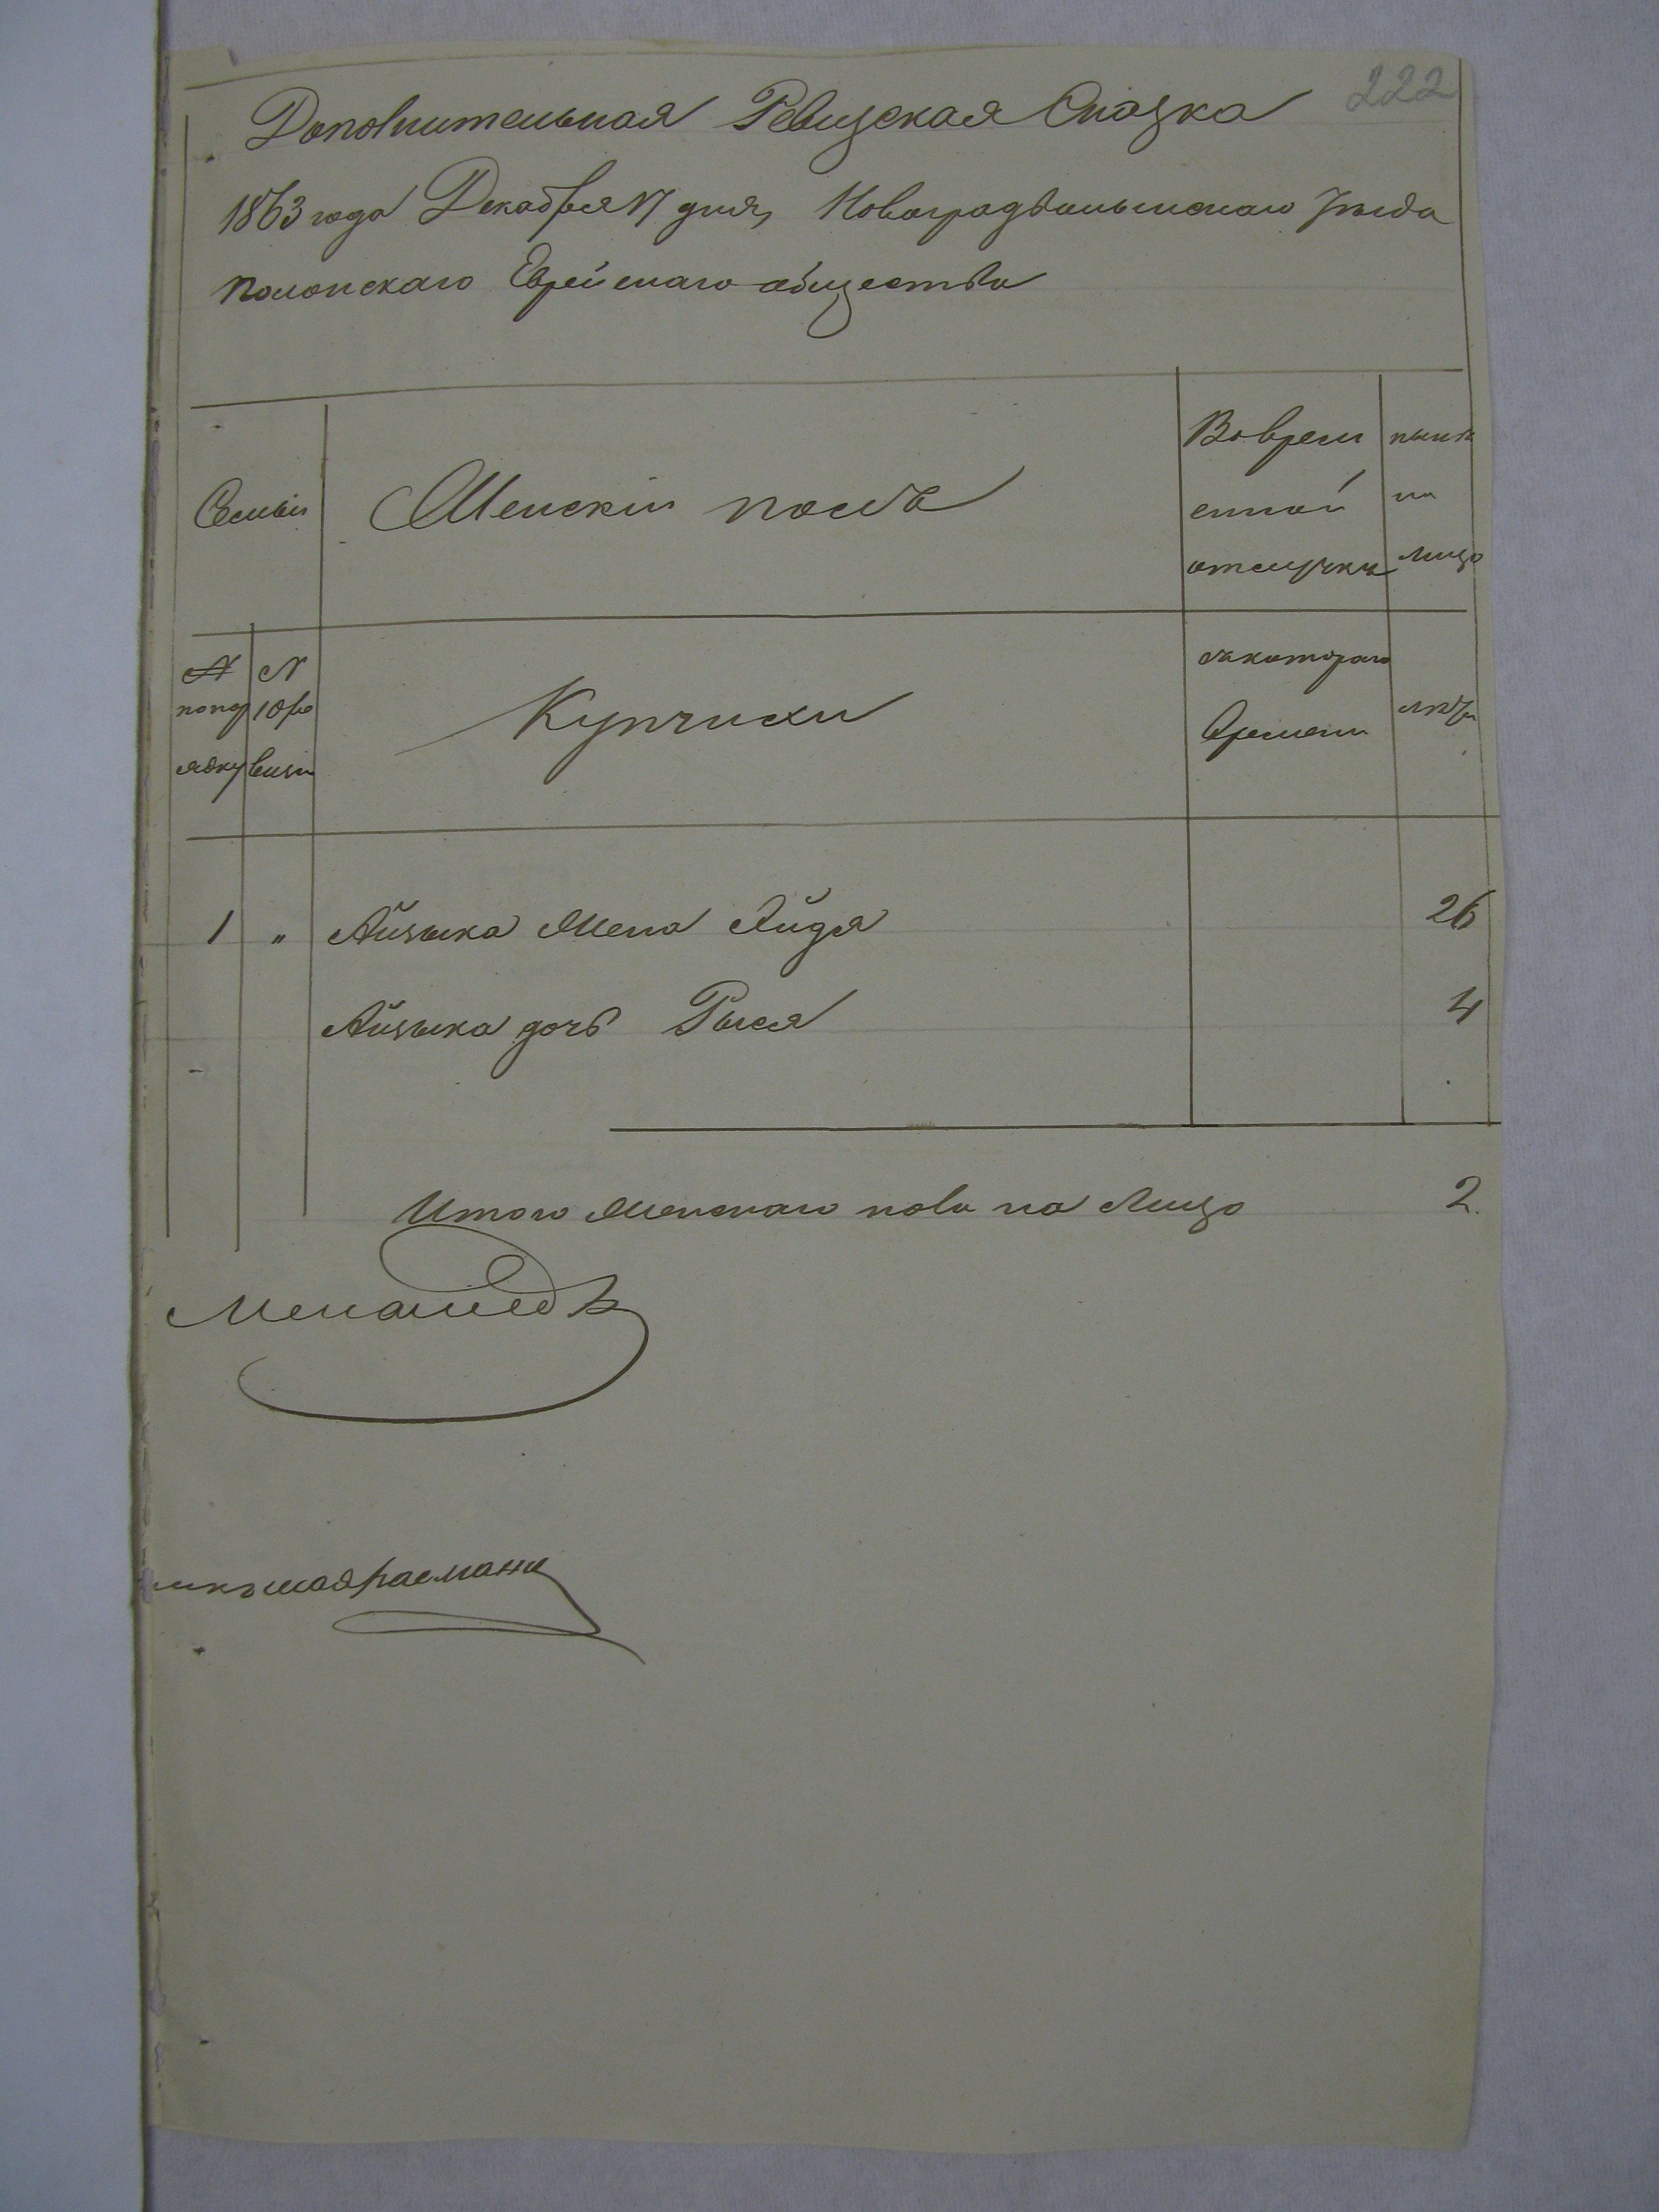 222
Дополнительная Ревизская Сказка
1863 года Декабря 17 дня, Новоградволынскаго Уезда
Полонскаго Еврейскаго общества
Семьи
Женскій полъ
Во врем
енной
отлучкѣ
нынѣ
на
лицо
№
поп
ядку
№
10 ре
визіи
Купчихи
съ котораго
времени
лѣта
1 " Айзыка жена Хайдя 26
Айзыка дочь Рыся 4
Итого женскаго пола на лицо 2